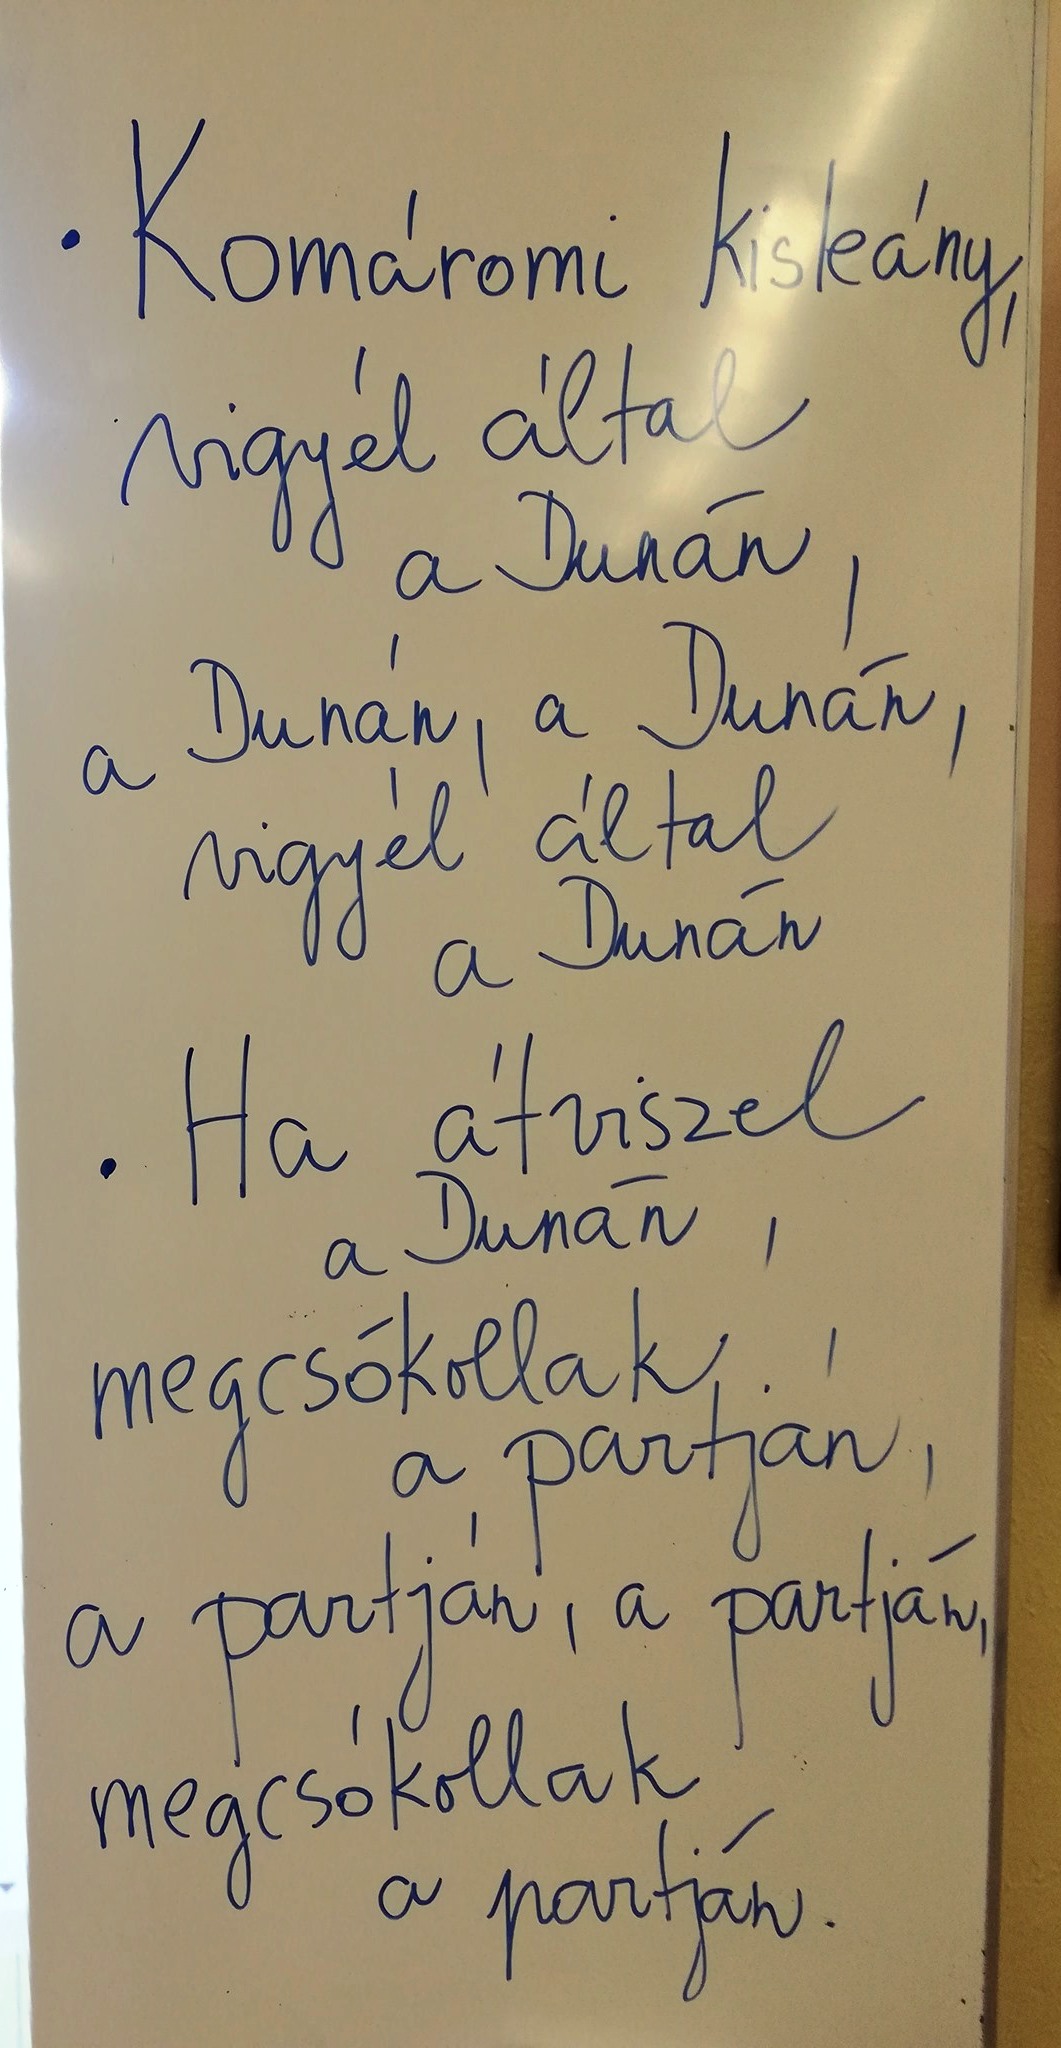 · Komáromi kisleány,
vigyél által
a Dunán,
a Dunán, a Dunán,
vigyél által
a Dunán
· Ha átviszel
a Dunán,
megcsókollak
a partján,
a partján, a partján,
megcsókollak
a partján.